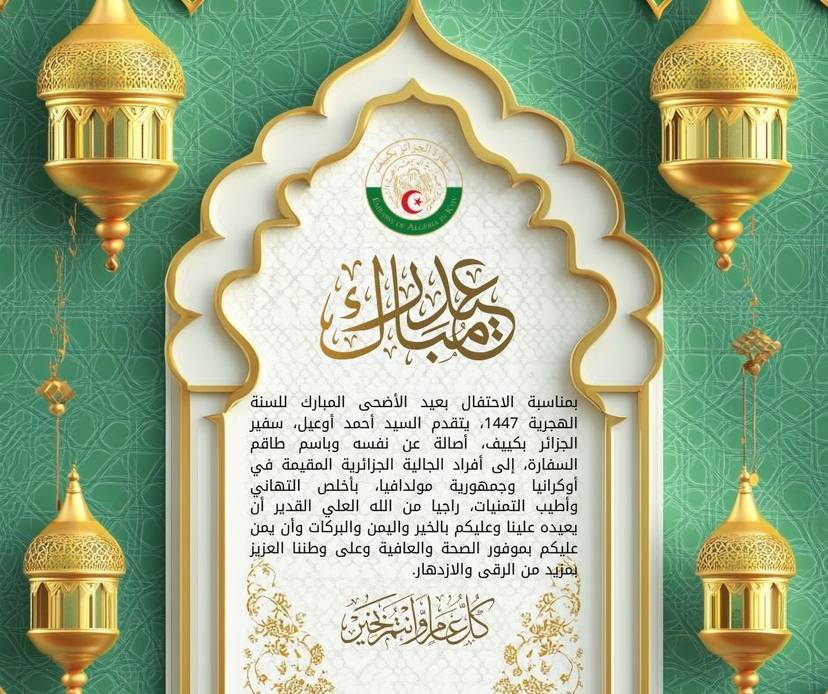 سفارة الجزائر بكييف
EMBASSY OF ALGERIA IN KYIV
عيد مبارك
بمناسبة الاحتفال بعيد الأضحى المبارك للسنة
الهجرية 1447، يتقدم السيد أحمد أوعيل، سفير
الجزائر بكييف، أصالة عن نفسه وباسم طاقم
السفارة، إلى أفراد الجالية الجزائرية المقيمة في
أوكرانيا وجمهورية مولدافيا، بأخلص التهاني
وأطيب التمنيات، راجيا من الله العلي القدير أن
يعيده علينا وعليكم بالخير واليمن والبركات وأن يمن
عليكم بموفور الصحة والعافية وعلى وطننا العزيز
بمزيد من الرقى والازدهار.
كُلُّ عَامٍ وَأَنْتُمْ بِخَيْرٍ